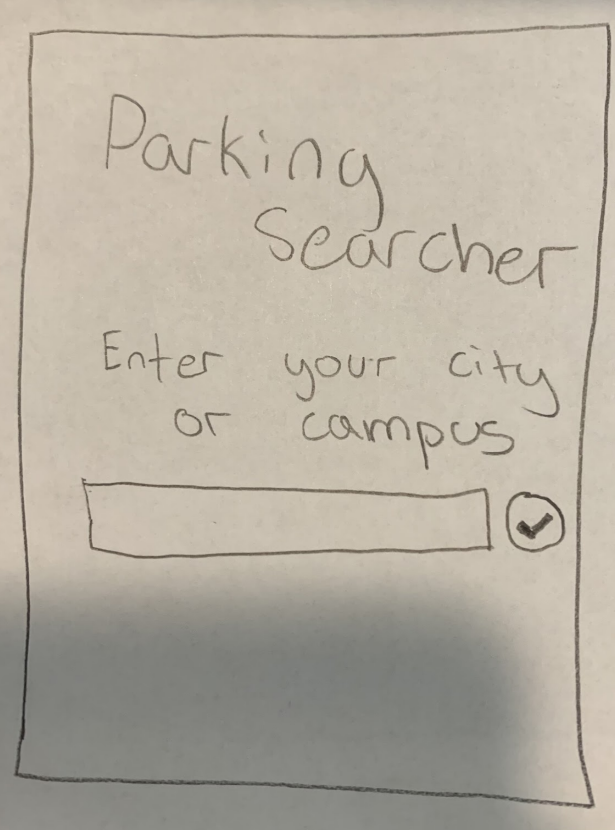 Parking
Searcher
Enter your city
or campus